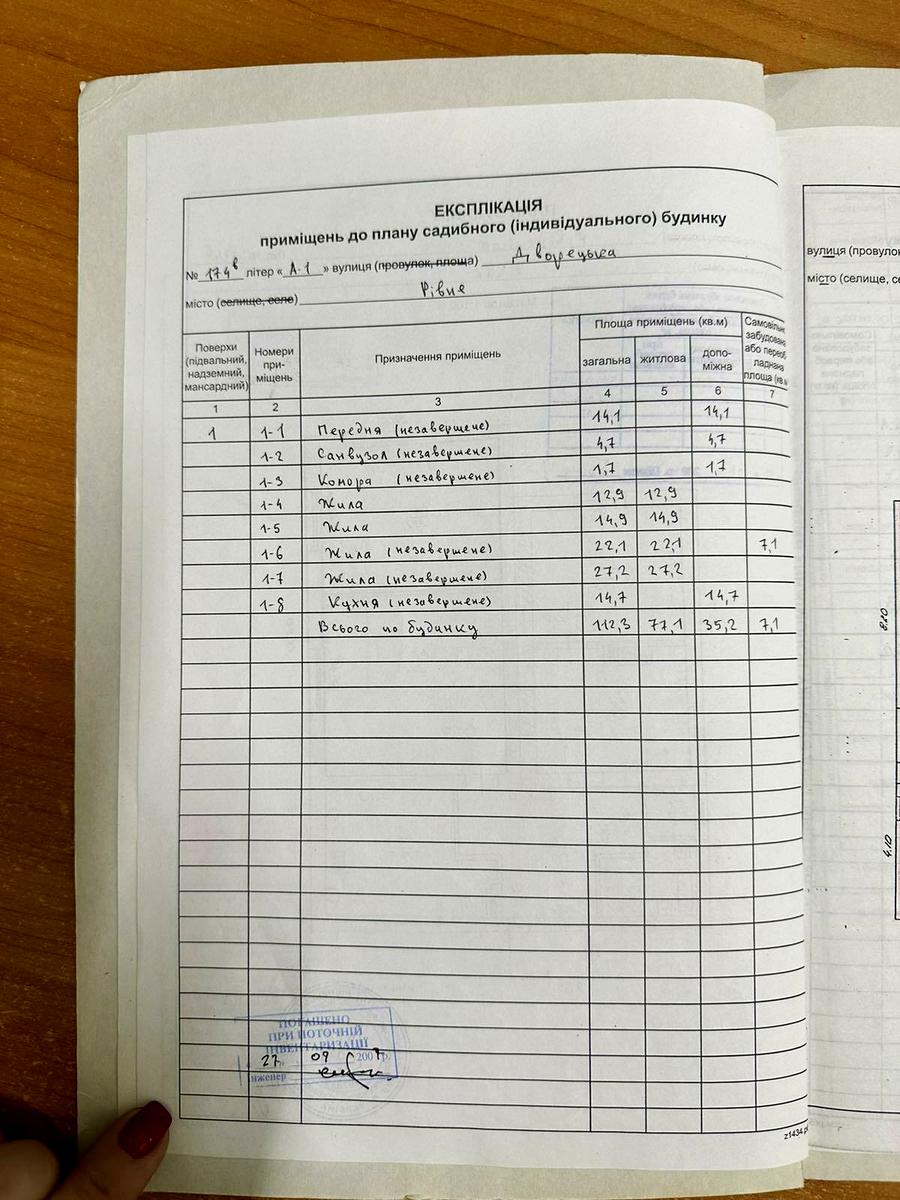 ЕКСПЛІКАЦІЯ
приміщень до плану садибного (індивідуального) будинку
№ 174в літер « А-1 » вулиця (провулок, площа) Дворецька
місто (селище, село) Рівне
Поверхи (підвальний, надземний, мансардний) Номери при-міщень Призначення приміщень Площа приміщень (кв.м) загальна житлова допо-міжна
1 2 3 4 5 6 7
1 1-1 Передня (незавершене) 14,1 14,1
1-2 Санвузол (незавершене) 4,7 4,7
1-3 Комора (незавершене) 1,7 1,7
1-4 Жила 12,9 12,9
1-5 Жила 14,9 14,9
1-6 Жила (незавершене) 22,1 22,1 7,1
1-7 Жила (незавершене) 27,2 27,2
1-8 Кухня (незавершене) 14,7 14,7
Всього по будинку 112,3 77,1 35,2 7,1
ПОГАШЕНО
ПРИ ПОТОЧНІЙ
ІНВЕНТАРИЗАЦІЇ
27 09 200 р.
інженер
вулиця (провулок
місто (селище, се
8.10
4.10